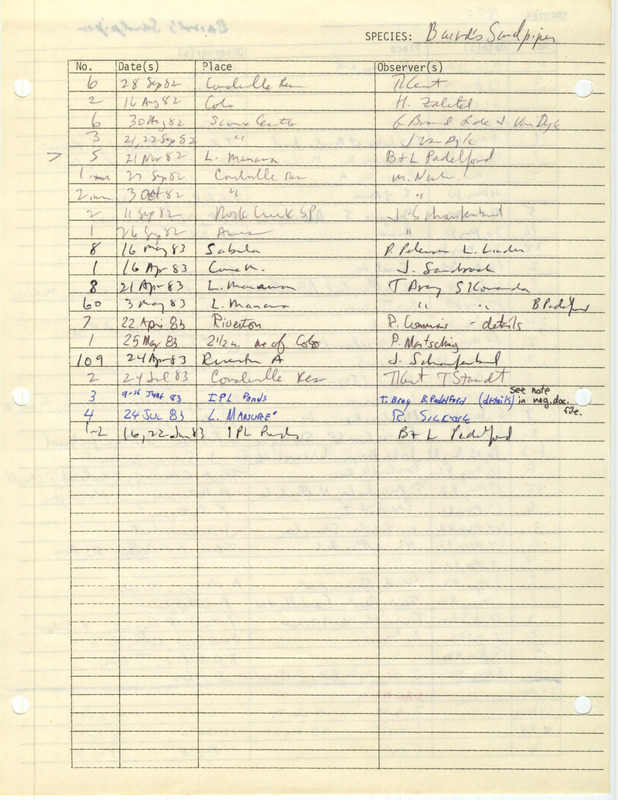 SPECIES: Baird's Sandpiper
No. Date(s) Place Observer(s)
6 28 Sep 82 Coralville Res TKent
2 16 Aug 82 Colo H. Zaletel
6 30 Aug 82 J. Van Dyk
3 21, 22 Sep 82 " J Van Dyk
> 5 21 Nov 82 L. Manawa B+L Padelford
1 27 Sep 82 Coralville Res M. Newlon
2 3 Oct 82 " "
2 11 Sep 82 Rock Creek SP J. Schaufenbuel
1 26 Sep 82 Ames "
8 16 May 83 Sabula P. Petersen L. Linder
1 16 Apr 83 J. Sandrock
8 21 Apr 83 L. Manawa T Bray
60 3 May 83 L. Manawa " " B Padelford
7 22 Apr 83 Riverton R. Cummins - details
1 25 May 83 2 1/2 m. ne of Colo P. Martsching
109 24 Apr 83 Riverton A J. Schaufenbuel
2 24 Jul 83 Coralville Res TKent T Staudt
3 9-16 June 83 IPL Ponds T. Bray B. Padelford (details) see note in neg. doc. file.
4 24 Jul 83 L. MANAWA R. SILCOCK
1-2 16, 22 Jun 83 IPL Ponds B+L Padelford